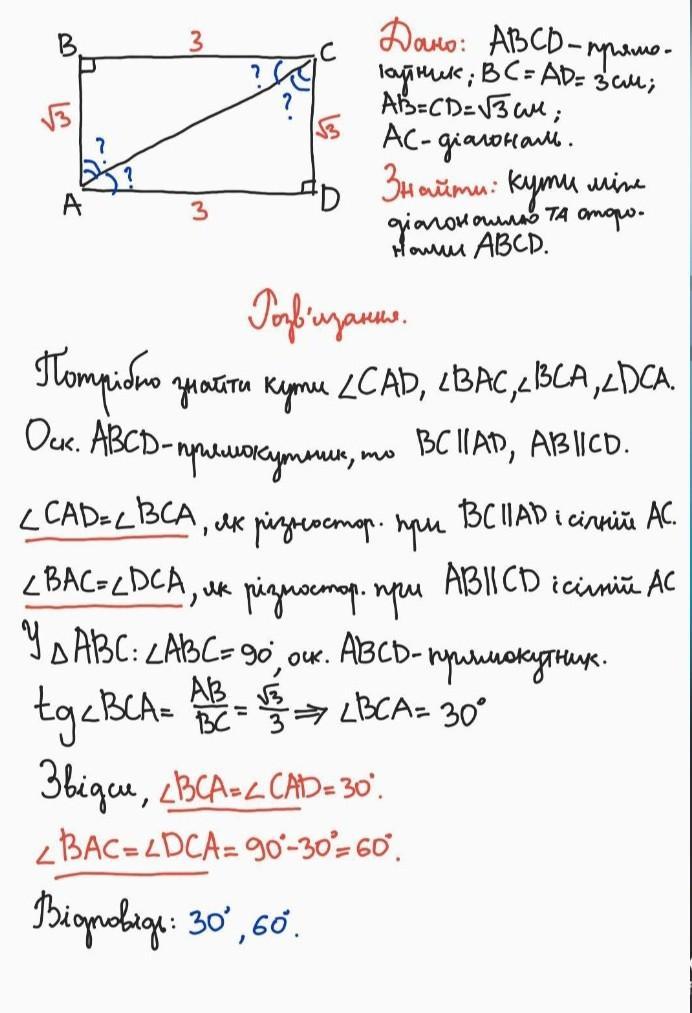 B 3 C
? ?
√3 √3
? ?
A 3 D
Дано: ABCD-прямо-
кутник; BC=AD=3см;
AB=CD=√3 см;
AC-діагональ.
Знайти: кути між
діагоналлю ТА сторо-
нами ABCD.
Розв'язання.
Потрібно знайти кути ∠CAD, ∠BAC, ∠BCA, ∠DCA.
Оск. ABCD-прямокутник, то BC||AD, AB||CD.
∠CAD=∠BCA, як різностор. при BC||AD і січній AC.
∠BAC=∠DCA, як різностор. при AB||CD і січній AC
У △ABC: ∠ABC=90°, оск. ABCD-прямокутник.
tg∠BCA= AB/BC = √3/3 ⇒ ∠BCA= 30°
Звідси, ∠BCA=∠CAD=30°.
∠BAC=∠DCA= 90°-30°=60°.
Відповідь: 30°, 60°.